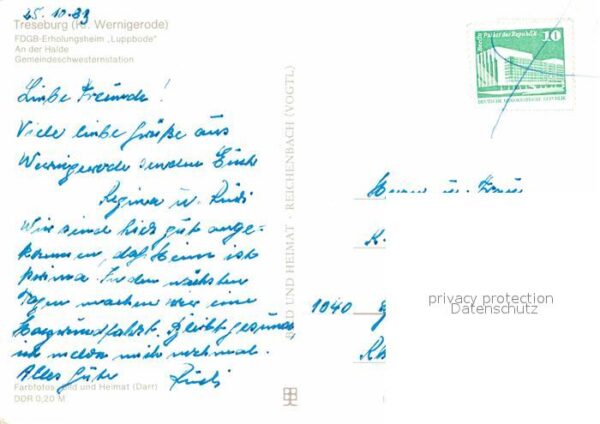 25.10.83
Treseburg (Kr. Wernigerode)
FDGB-Erholungsheim „Luppbode"
An der Halde
Gemeindeschwesternstation
Liebe Freunde!
Viele liebe Grüße aus
Wernigerode senden Euch
Regina u. Rudi
Wir sind hier gut ange-
kommen, das Heim ist
prima. In den nächsten
Tagen machen wir eine
Harzrundfahrt. Bleibt gesund
ich melde mich nochmal.
Alles Gute Rudi
Farbfotos: Bild und Heimat (Darr)
DDR 0,20 M
BILD UND HEIMAT · REICHENBACH (VOGTL)
Berlin Palast der Republik 10
DEUTSCHE DEMOKRATISCHE REPUBLIK
Herrn u. Frau
K.
1040
privacy protection
Datenschutz